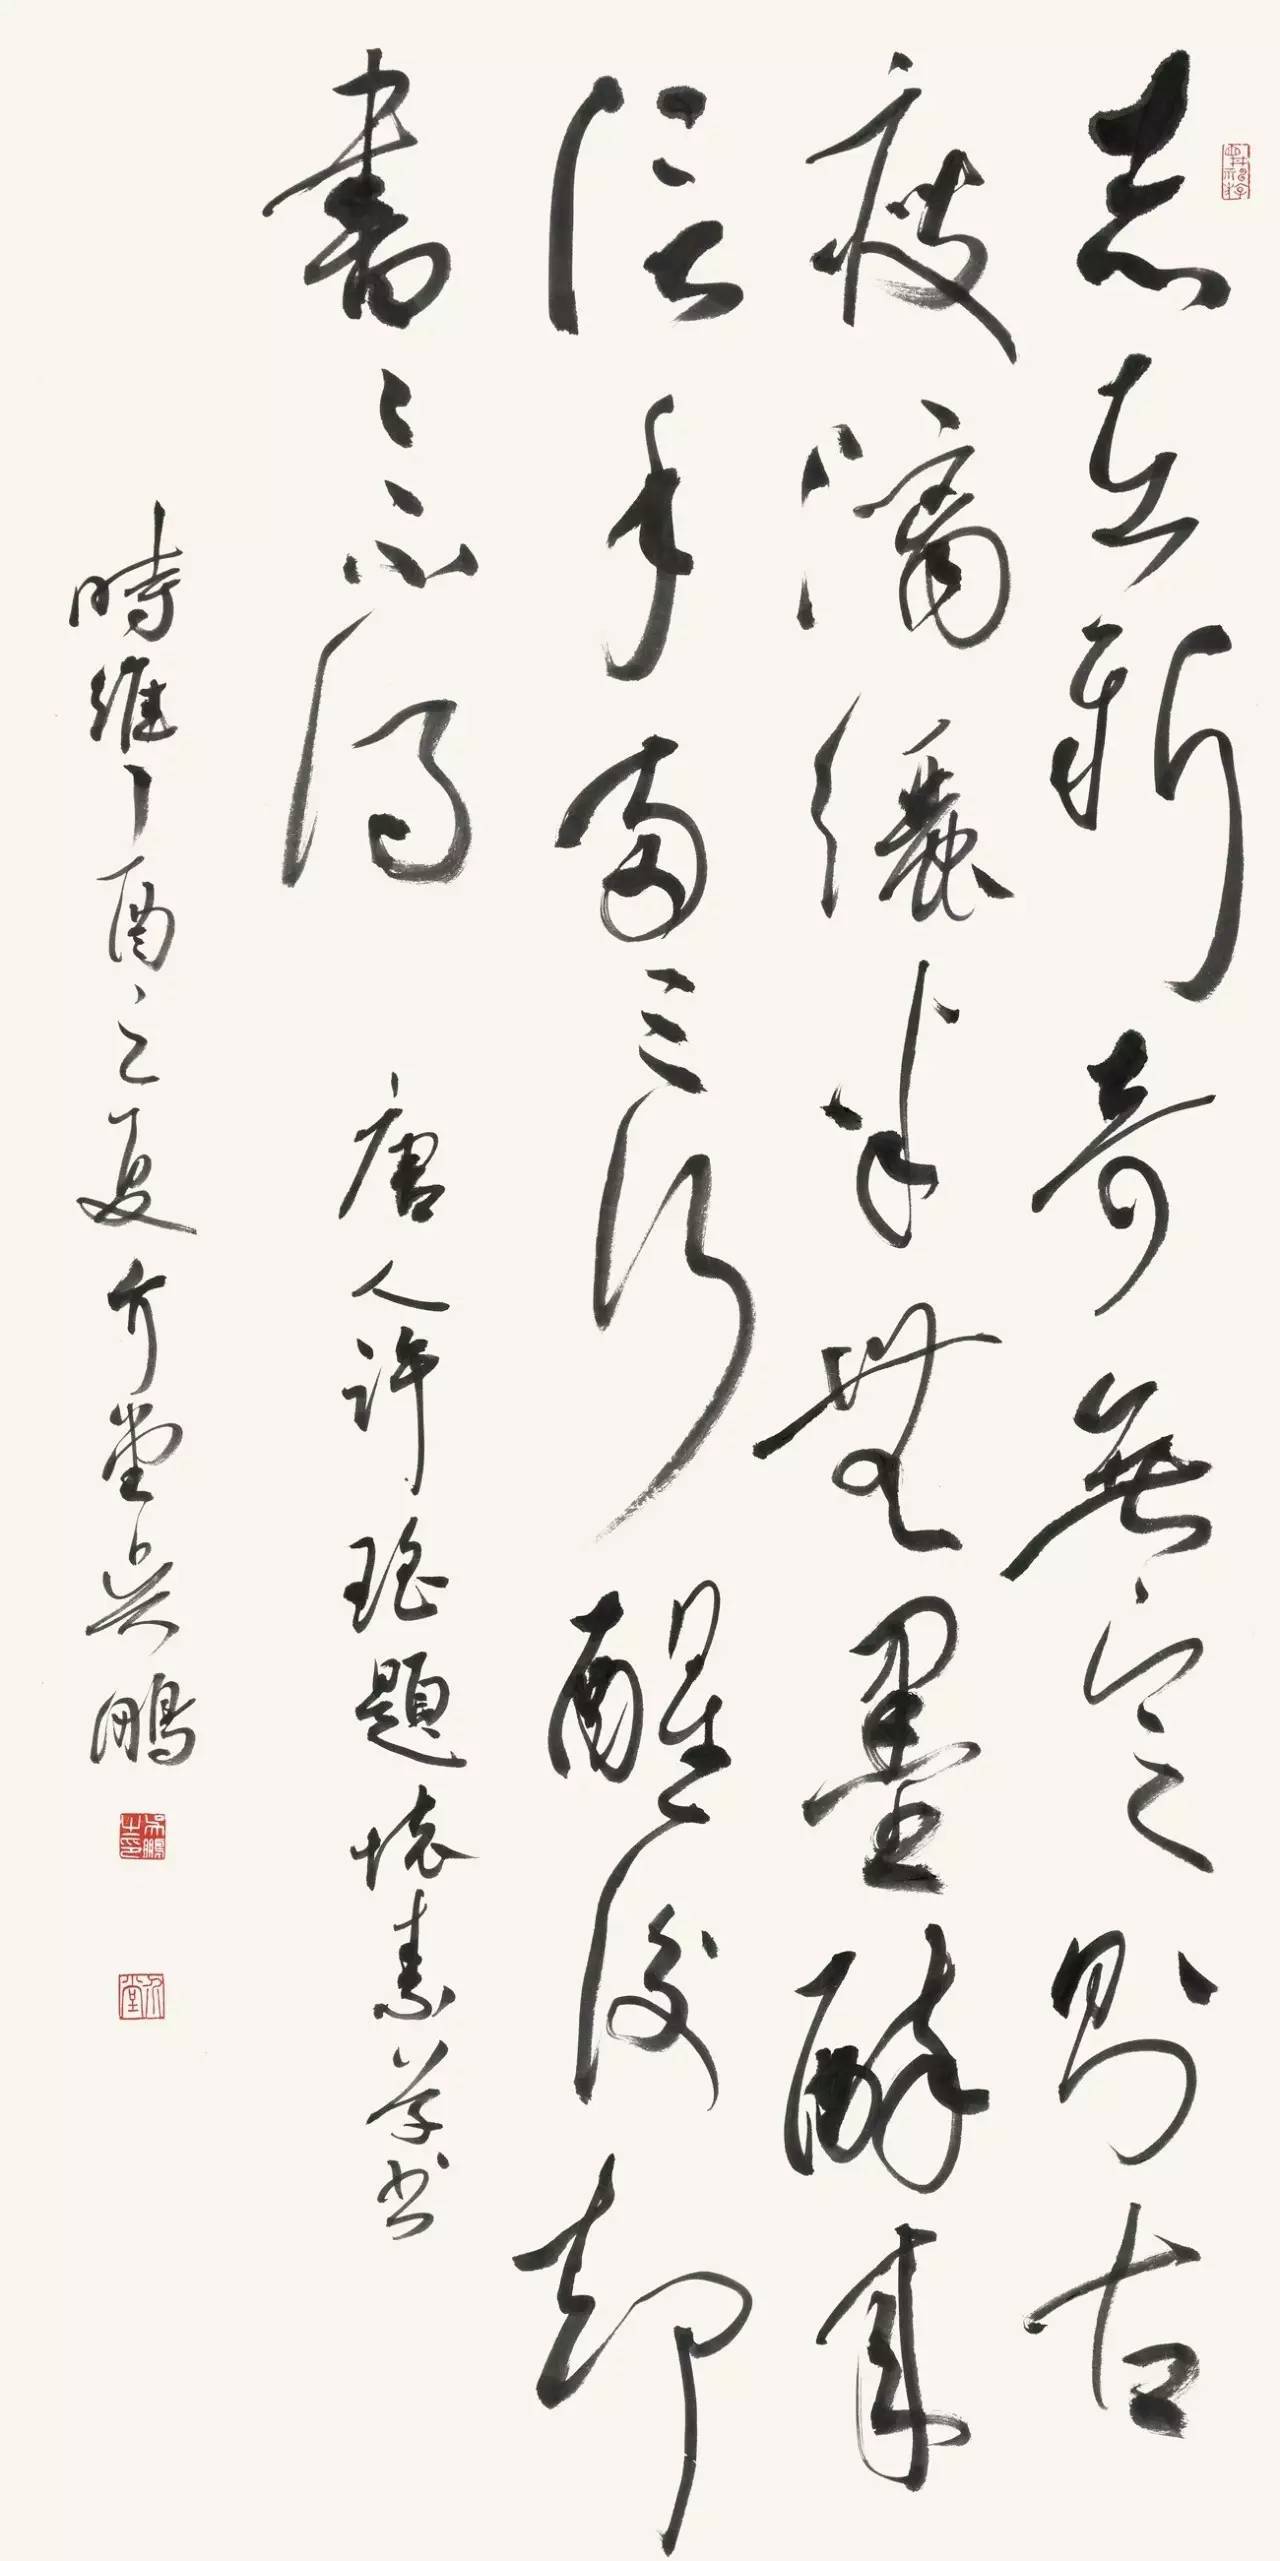 志在新奇無定則古
瘦漓纚半無墨醉來
信手兩三行醒後却
書〻不得 唐人許瑤題懷素草书
時維丁酉之夏介堂吳鵬
吳鵬之印
介堂